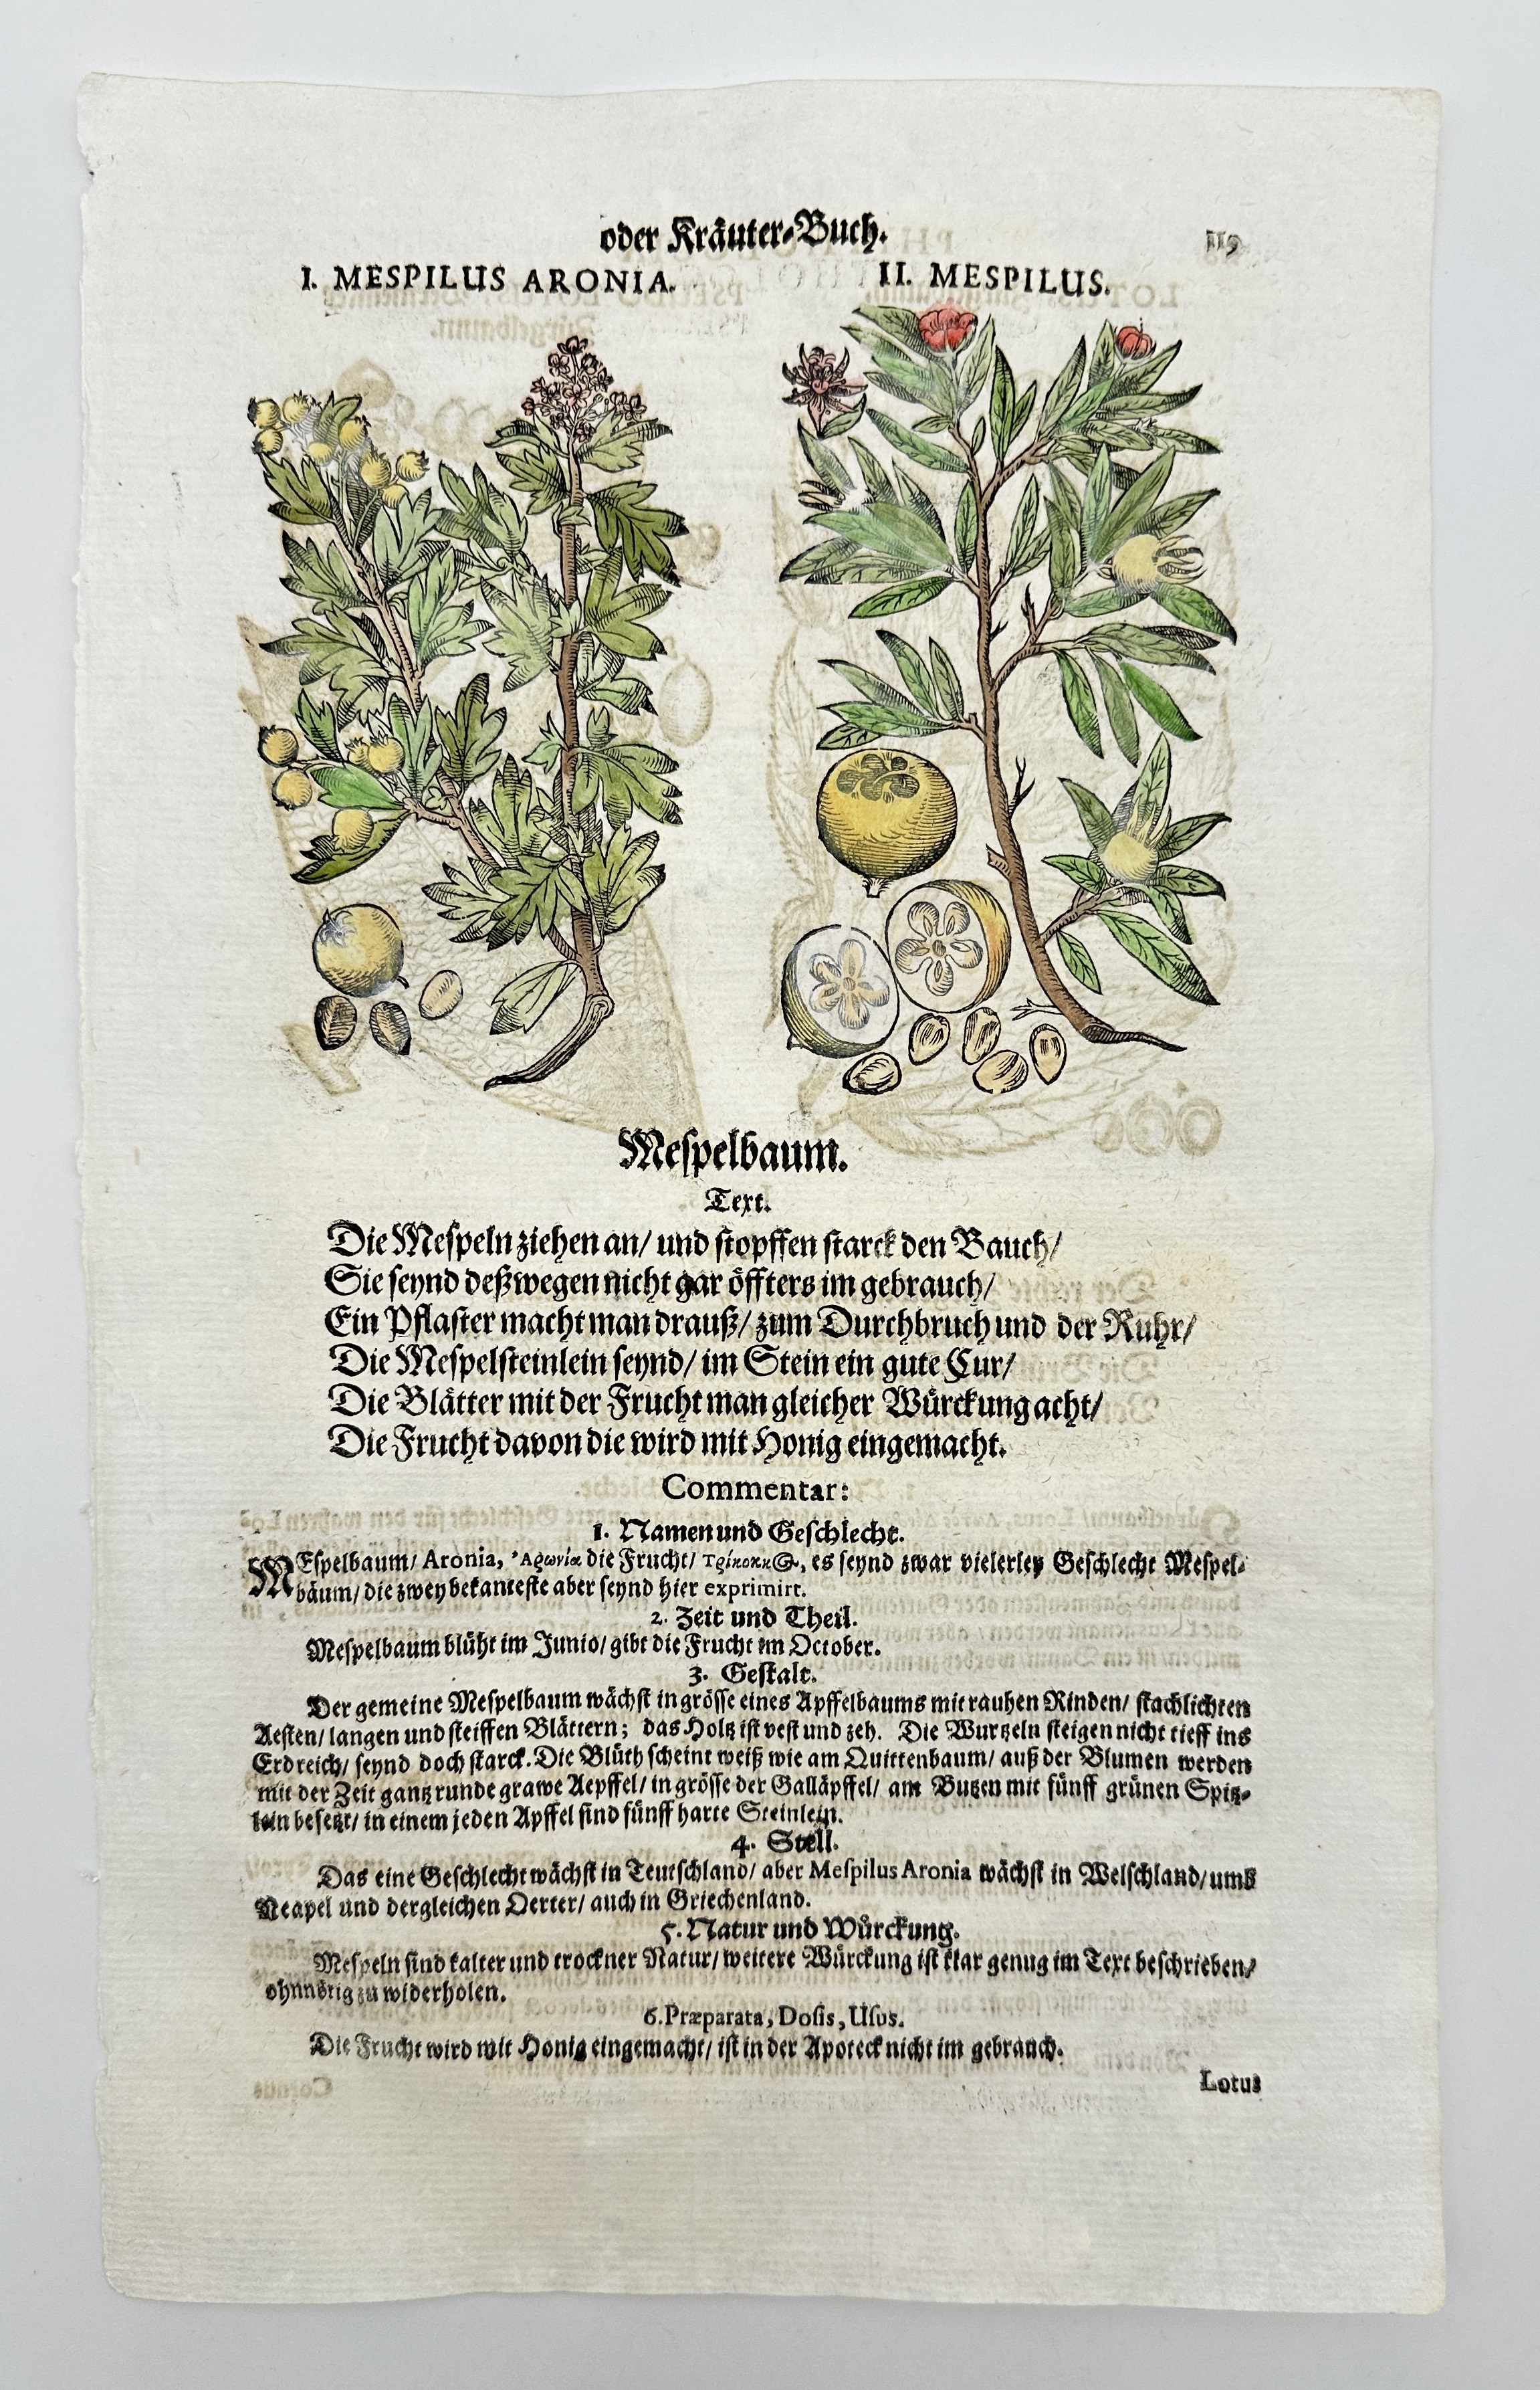 oder Kräuter-Buch.
119
I. MESPILUS ARONIA.
II. MESPILUS.
Meſpelbaum.
Text.
Die Meſpeln ziehen an/ und ſtopffen ſtarck den Bauch/
Sie ſeynd deßwegen nicht gar öffters im gebrauch/
Ein Pflaſter macht man drauß/ zum Durchbruch und der Ruhr/
Die Meſpelſteinlein ſeynd/ im Stein ein gute Cur/
Die Blätter mit der Frucht man gleicher Würckung acht/
Die Frucht davon die wird mit Honig eingemacht.
Commentar:
1. Namen und Geſchlecht.
MEſpelbaum/ Aronia, Ἀρωνία die Frucht/ Τρίκοκκος, es ſeynd zwar vielerley Geſchlecht Meſpel-
bäum/ die zwey bekanteſte aber ſeynd hier exprimirt.
2. Zeit und Theil.
Meſpelbaum blüht im Junio/ gibt die Frucht im October.
3. Geſtalt.
Der gemeine Meſpelbaum wächſt in gröſſe eines Apffelbaums mit rauhen Rinden/ ſtachlichten
Aeſten/ langen und ſteiffen Blättern; das Holtz iſt veſt und zeh. Die Wurtzeln ſteigen nicht tieff ins
Erdreich/ ſeynd doch ſtarck. Die Blüth ſcheint weiß wie am Quittenbaum/ auß der Blumen werden
mit der Zeit gantz runde grawe Aepffel/ in gröſſe der Galläpffel/ am Butzen mit fünff grünen Spitz-
lein beſetzt/ in einem jeden Apffel ſind fünff harte Steinlein.
4. Stell.
Das eine Geſchlecht wächſt in Teutſchland/ aber Meſpilus Aronia wächſt in Welſchland/ umb
Neapel und dergleichen Oerter/ auch in Griechenland.
5. Natur und Würckung.
Meſpeln ſind kalter und trockner Natur/ weitere Würckung iſt klar genug im Text beſchrieben/
ohnnötig zu widerholen.
6. Præparata, Doſis, Uſus.
Die Frucht wird mit Honig eingemacht/ iſt in der Apoteck nicht im gebrauch.
Lotus